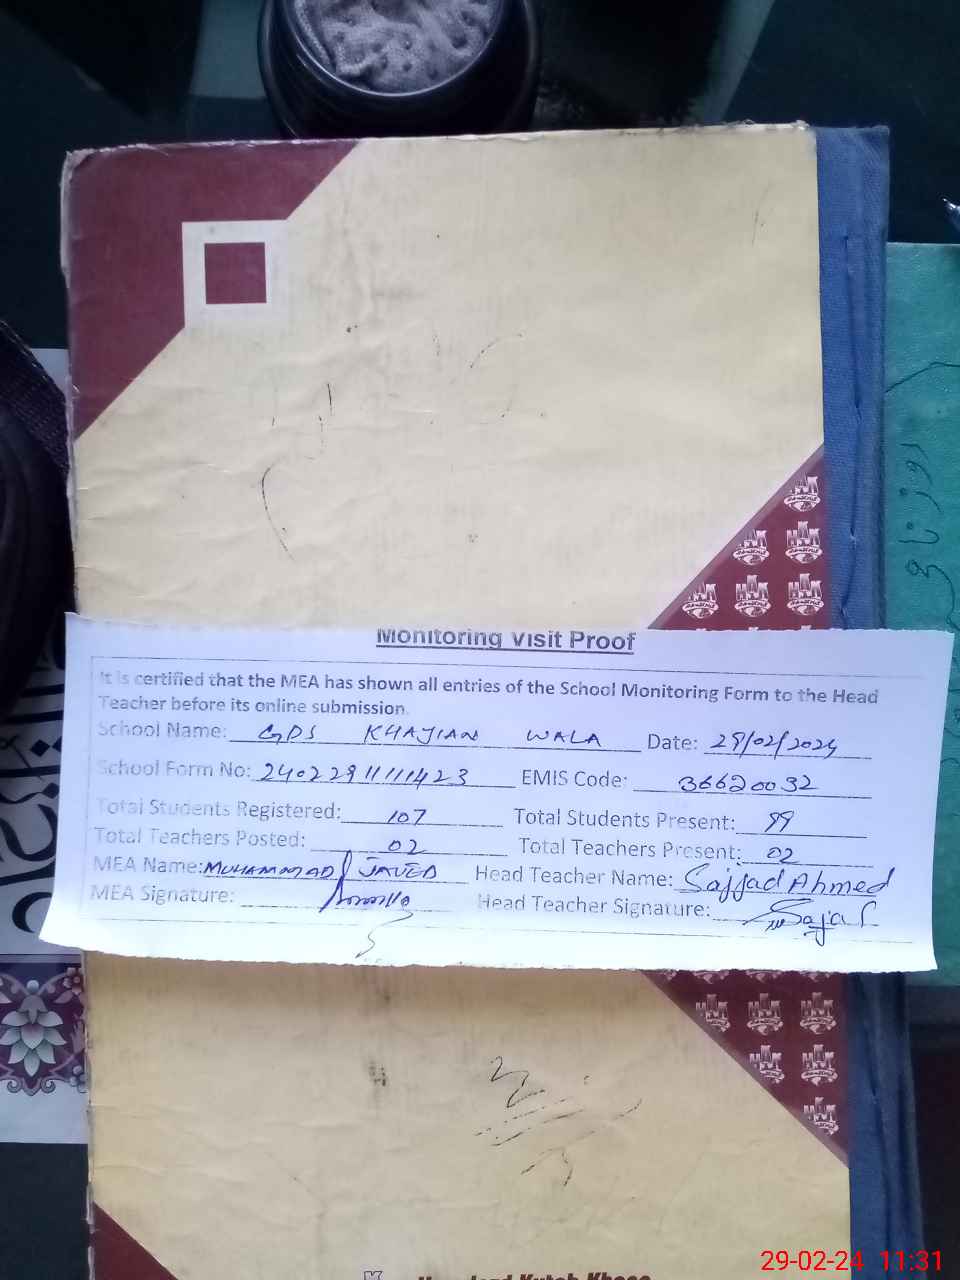 Monitoring Visit Proof
It is certified that the MEA has shown all entries of the School Monitoring Form to the Head
Teacher before its online submission.
School Name: GPS KHAJIAN WALA Date: 29/02/2024
School Form No: 24022911111423 EMIS Code: 36620032
Total Students Registered: 107 Total Students Present: 99
Total Teachers Posted: 02 Total Teachers Present: 02
MEA Name: MUHAMMAD JAVED Head Teacher Name: Sajjad Ahmed
MEA Signature: Head Teacher Signature: Sajad
29-02-24 11:31